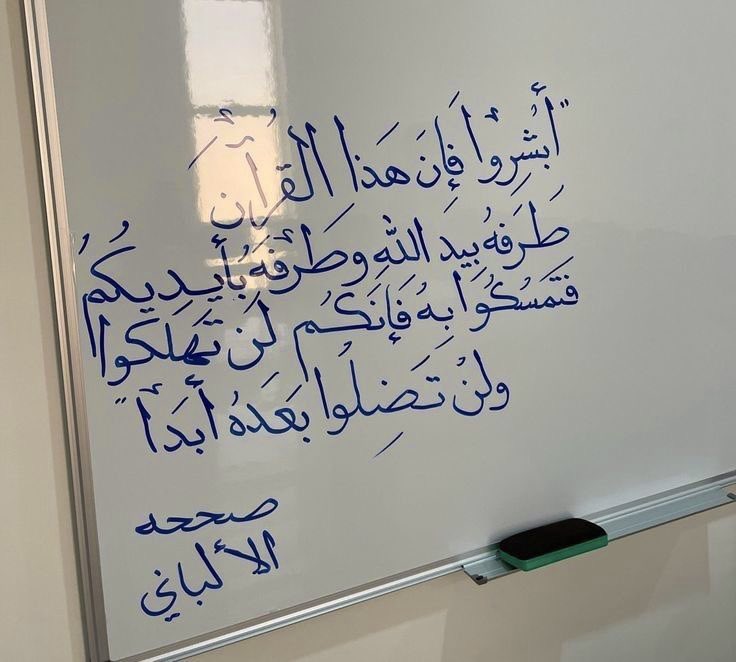 "أَبْشِرُوا فَإِنَ هَذا القُرْآنَ
طَرَفهُ بِيَدِ اللهِ وَطَرْفَهُ بُأَيدِيكُمُ
فَتَمَسُكُوا بِهُ فَإِنَكُم لَن تَهَلَكُوا
ولنْ تَضِلُوا بَعَدهُ أَبَداً"
صححه
الألباني